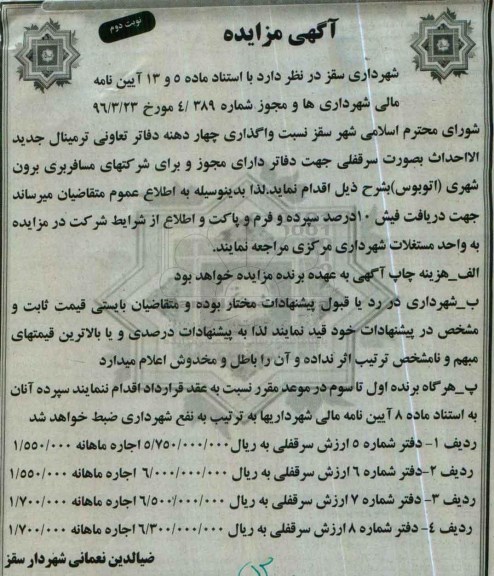 نوبت دوم
آگهی مزایده
شهرداری سقز در نظر دارد با استناد ماده ۵ و ۱۳ آیین نامه
مالی شهرداری ها و مجوز شماره ۳۸۹ /٤ مورخ ۹۶/۳/۲۳
شورای محترم اسلامی شهر سقز نسبت واگذاری چهار دهنه دفاتر تعاونی ترمینال جدید
الااحداث بصورت سرقفلی جهت دفاتر دارای مجوز و برای شرکتهای مسافربری برون
شهری (اتوبوس)بشرح ذیل اقدام نماید.لذا بدینوسیله به اطلاع عموم متقاضیان میرساند
جهت دریافت فیش ۱۰درصد سپرده و فرم و پاکت و اطلاع از شرایط شرکت در مزایده
به واحد مستغلات شهرداری مرکزی مراجعه نمایند.
الف_هزینه چاپ آگهی به عهده برنده مزایده خواهد بود
ب_شهرداری در رد یا قبول پیشنهادات مختار بوده و متقاضیان بایستی قیمت ثابت و
مشخص در پیشنهادات خود قید نمایند لذا به پیشنهادات درصدی و یا بالاترین قیمتهای
مبهم و نامشخص ترتیب اثر نداده و آن را باطل و مخدوش اعلام میدارد
پ_هرگاه برنده اول تا سوم در موعد مقرر نسبت به عقد قرارداد اقدام ننمایند سپرده آنان
به استناد ماده ۸ آیین نامه مالی شهرداریها به ترتیب به نفع شهرداری ضبط خواهد شد
ردیف ۱- دفتر شماره ۵ ارزش سرقفلی به ریال ۵/۷۵۰/۰۰۰/۰۰۰ اجاره ماهانه ۱/۵۵۰/۰۰۰
ردیف ۲-دفتر شماره ۶ ارزش سرقفلی به ریال ۶/۰۰۰/۰۰۰/۰۰۰ اجاره ماهانه ۱/۵۵۰/۰۰۰
ردیف ۳- دفتر شماره ۷ ارزش سرقفلی به ریال ۶/۵۰۰/۰۰۰/۰۰۰ اجاره ماهانه ۱/۷۰۰/۰۰۰
ردیف ٤- دفتر شماره ۸ ارزش سرقفلی به ریال ۶/۳۰۰/۰۰۰/۰۰۰ اجاره ماهانه ۱/۷۰۰/۰۰۰
ضیالدین نعمانی شهردار سقز